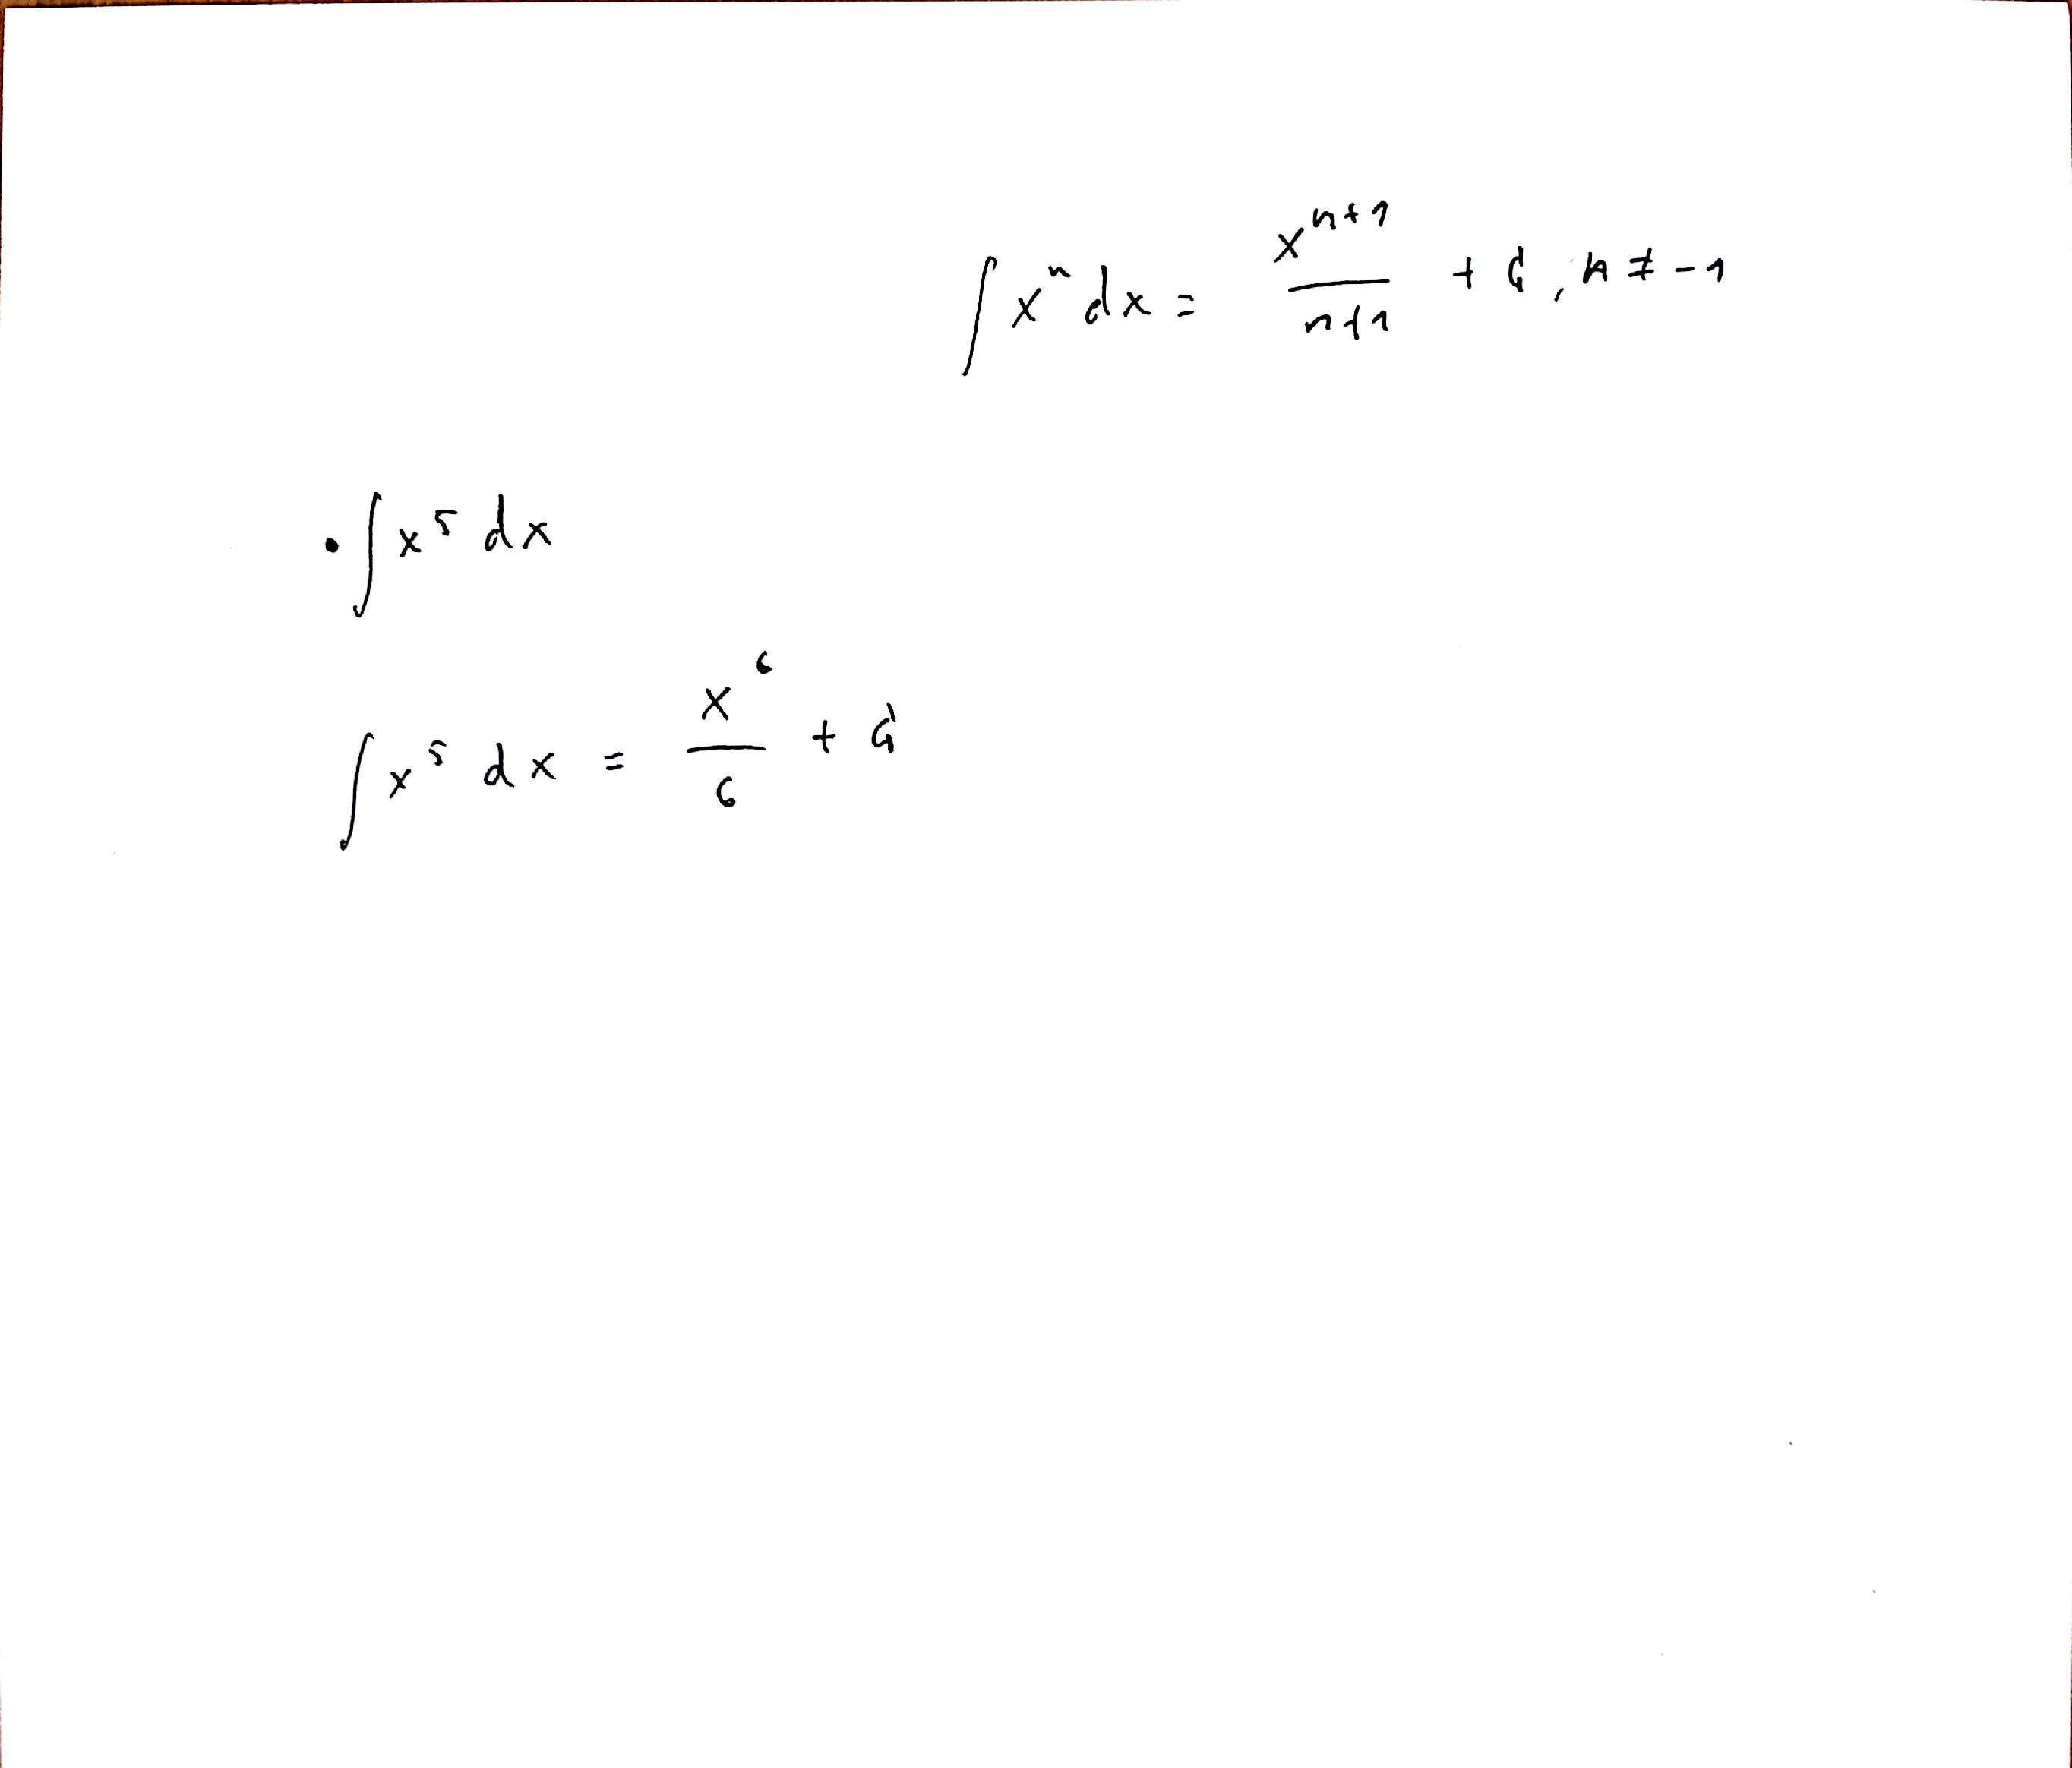 ∫ xⁿ dx = xⁿ⁺¹ / n+1 + C, n ≠ -1
• ∫ x⁵ dx
∫ x⁵ dx = x⁶ / 6 + C